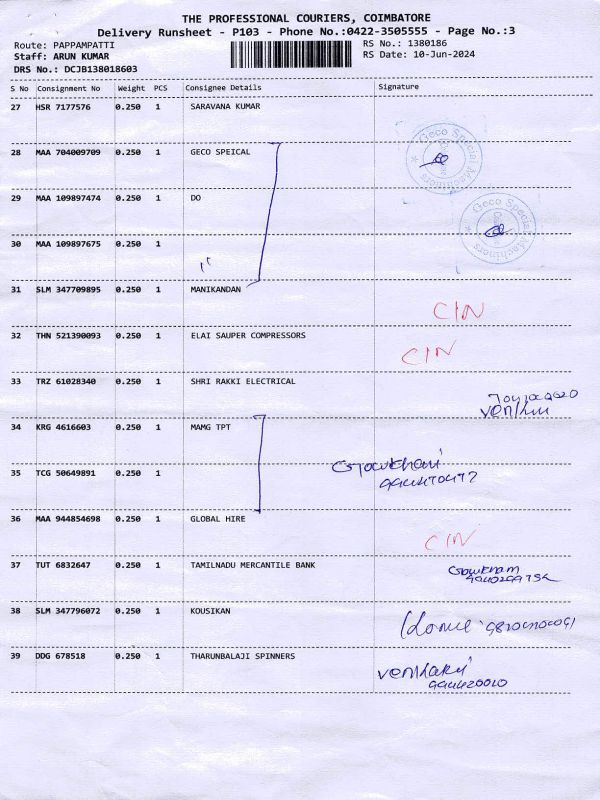 THE PROFESSIONAL COURIERS, COIMBATORE
Delivery Runsheet - P103 - Phone No.:0422-3505555 - Page No.:3
Route: PAPPAMPATTI RS No.: 1380186
Staff: ARUN KUMAR RS Date: 10-Jun-2024
DRS No.: DCJB138018603
S No Consignment No Weight PCS Consignee Details Signature
27 HSR 7177576 0.250 1 SARAVANA KUMAR
28 MAA 704009709 0.250 1 GECO SPEICAL
Geco Special Machiners
29 MAA 109897474 0.250 1 DO
Geco Special Machiners
30 MAA 109897675 0.250 1
31 SLM 347709895 0.250 1 MANIKANDAN
CIN
32 THN 521390093 0.250 1 ELAI SAUPER COMPRESSORS
CIN
33 TRZ 61028340 0.250 1 SHRI RAKKI ELECTRICAL
34 KRG 4616603 0.250 1 MAMG TPT
35 TCG 50649891 0.250 1
36 MAA 944854698 0.250 1 GLOBAL HIRE
CIN
37 TUT 6832647 0.250 1 TAMILNADU MERCANTILE BANK
38 SLM 347796072 0.250 1 KOUSIKAN
39 DDG 678518 0.250 1 THARUNBALAJI SPINNERS